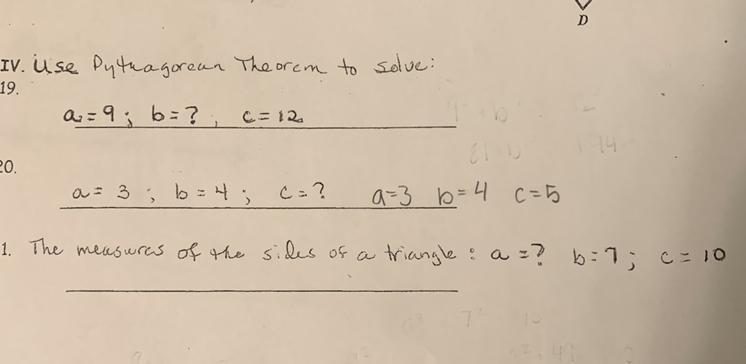 D
IV. Use Pythagorean Theorem to solve:
19.
a=9; b=?, c=12
20.
a=3; b=4; c=? a=3 b=4 c=5
1. The measures of the sides of a triangle: a=? b=7; c=10